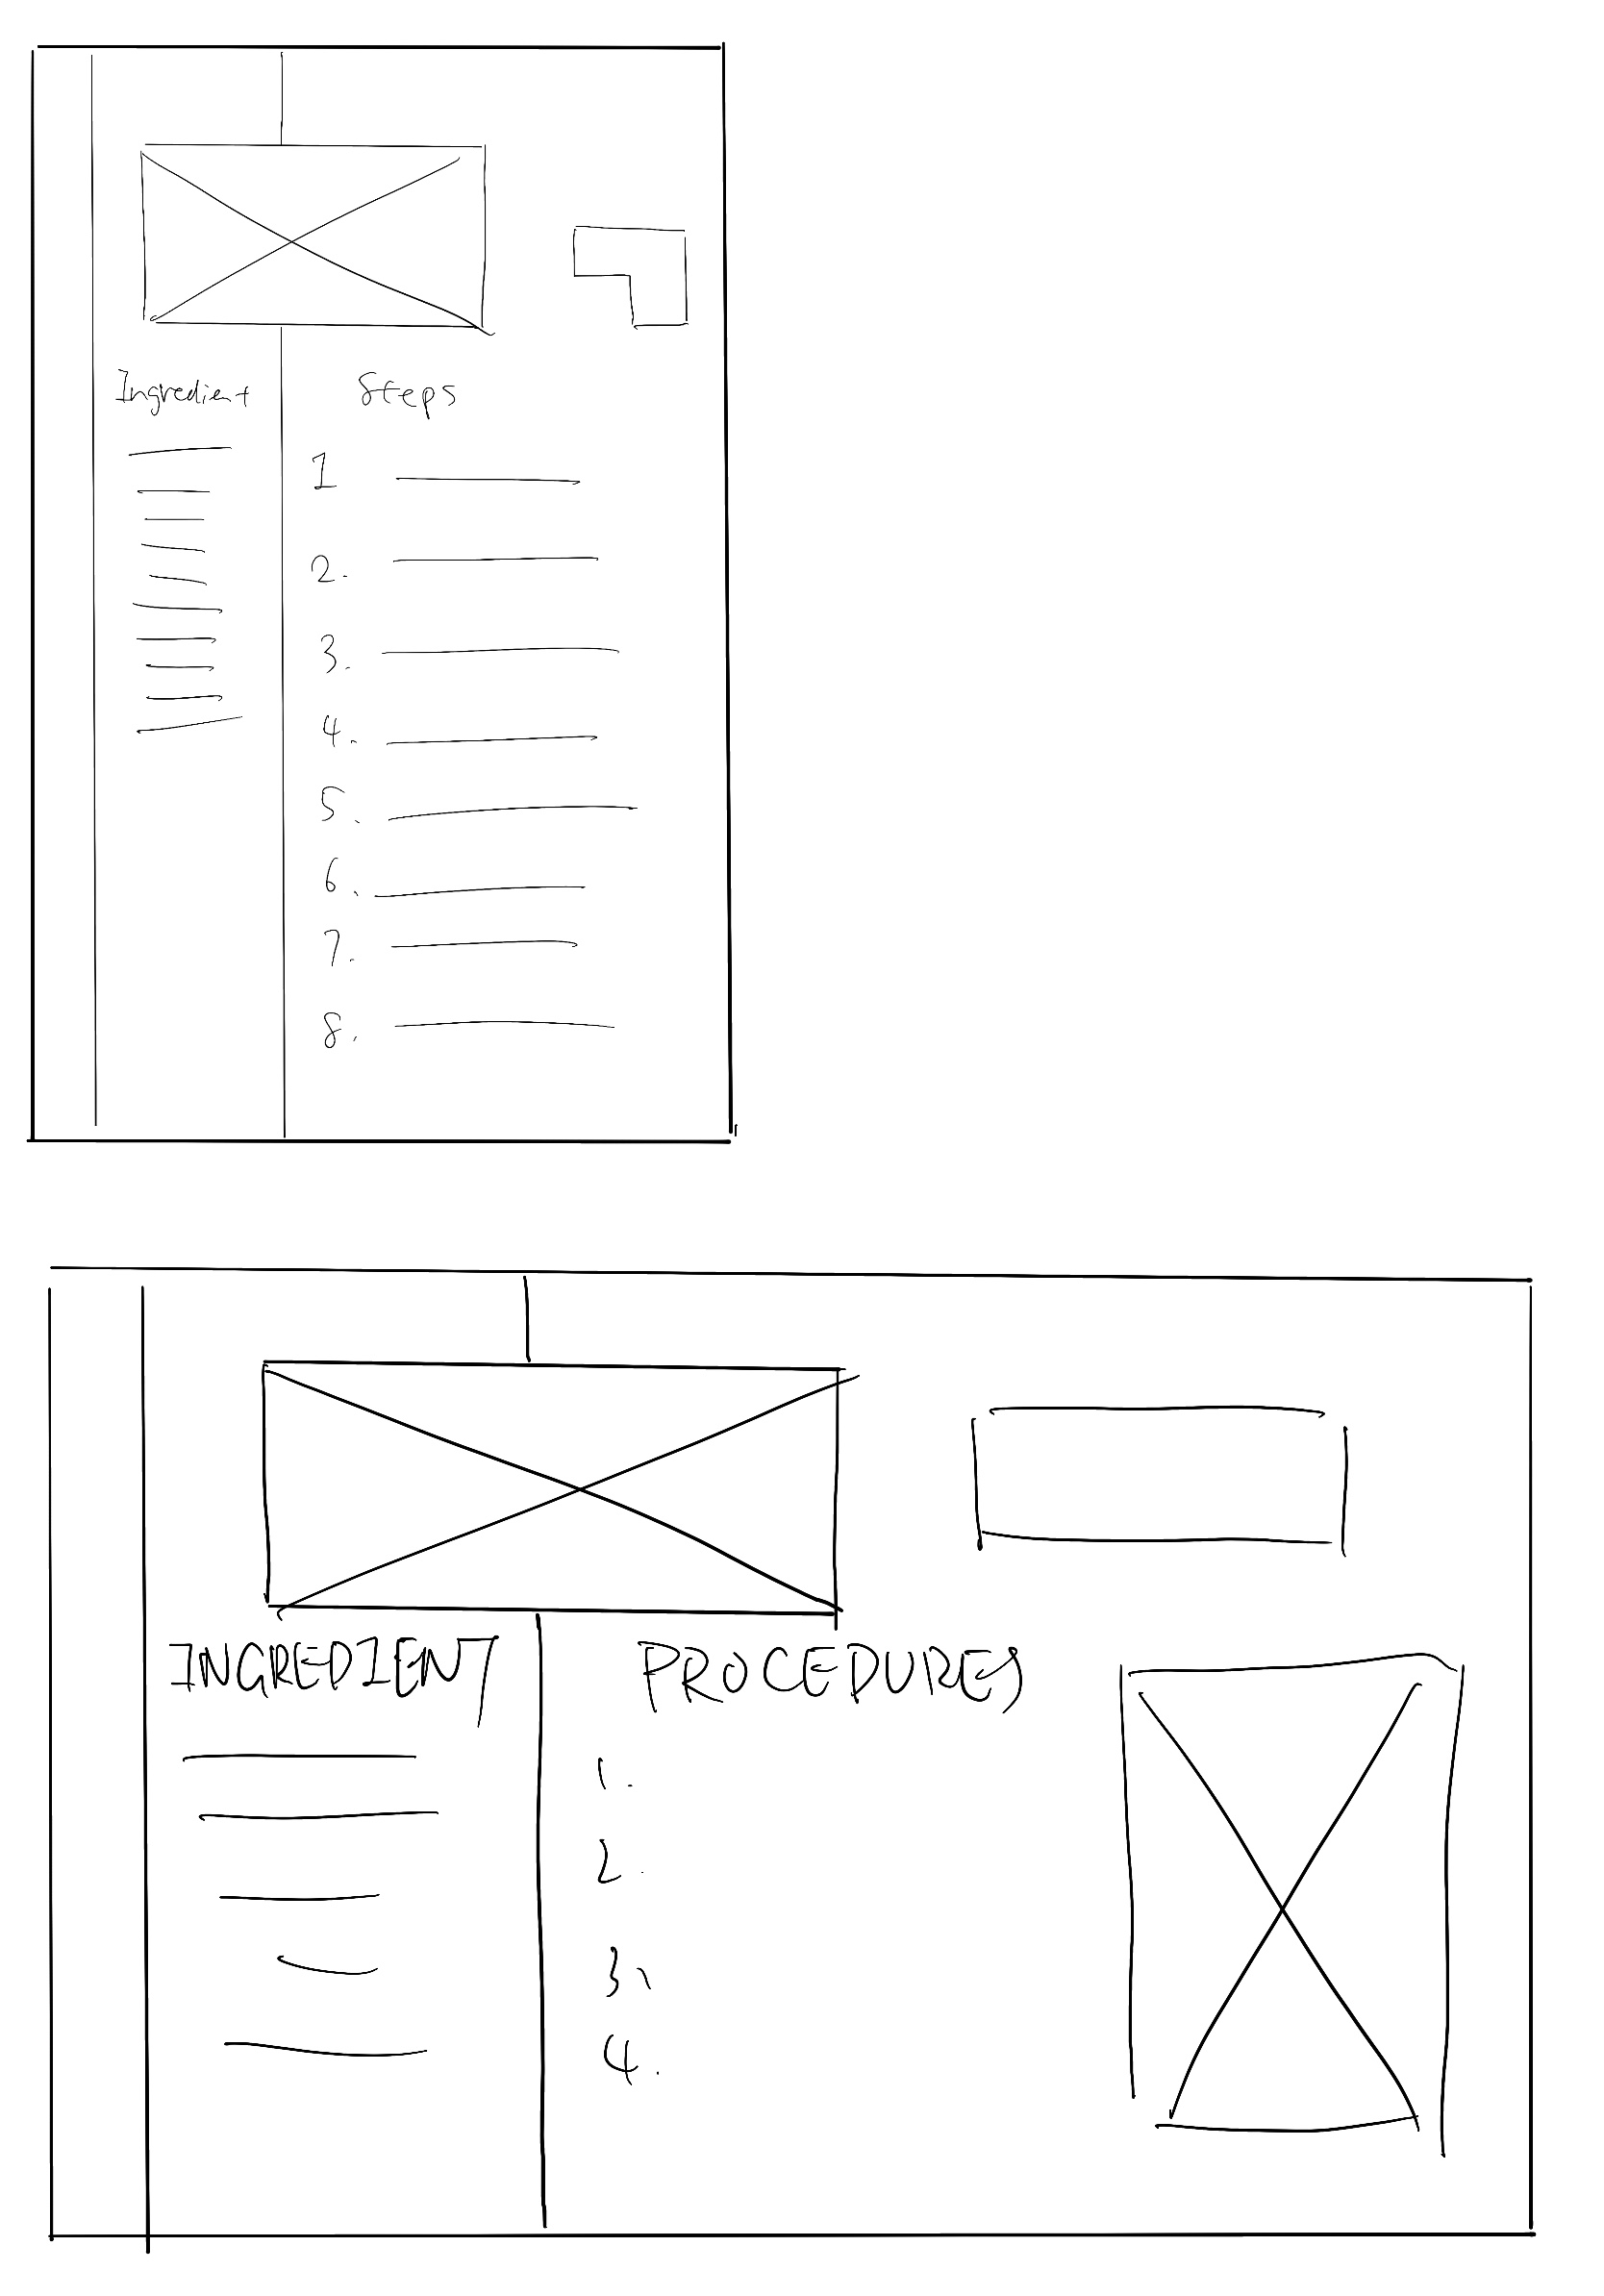 Ingredient Steps
1
2.
3.
4.
5.
6.
7.
8.
INGREDIENT PROCEDURES
1.
2.
3.
4.